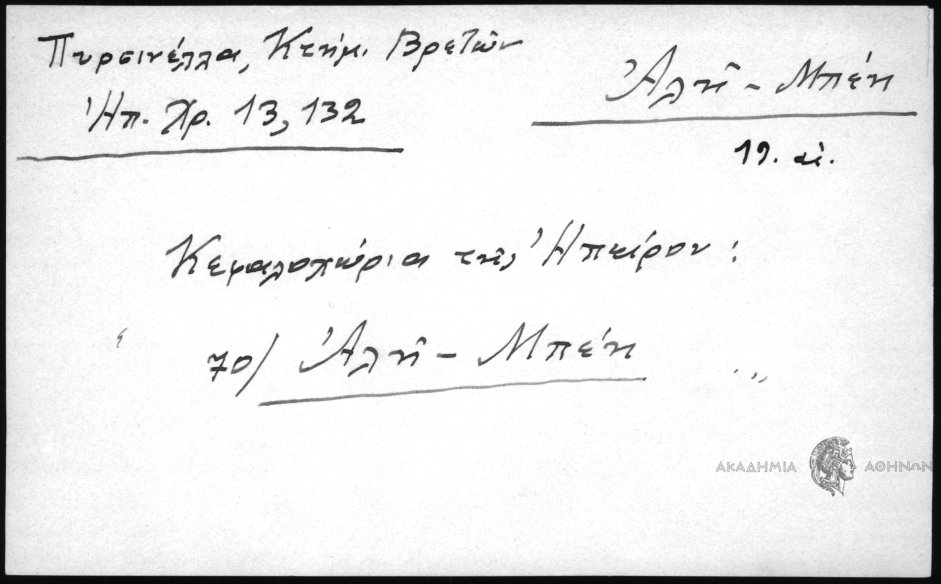 Πυρσινέλλα, Κτήμ. Βρετῶν
Ἠπ. Χρ. 13, 132
Ἀλῆ - Μπέη
19. αἰ.
Κεφαλοχώρια τῆς Ἠπείρου:
70) Ἀλῆ - Μπέη . ,,
ΑΚΑΔΗΜΙΑ ΑΘΗΝΩΝ